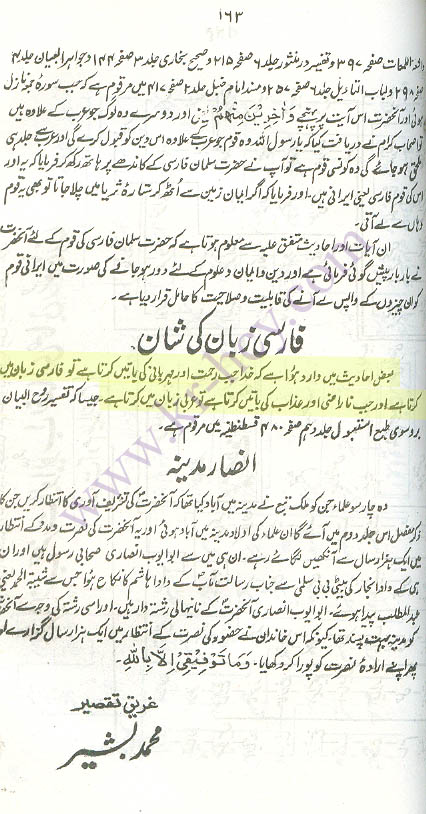 ۱۶۳
واشعۃ اللمعات صفحہ ۳۹۷ و تفسیر در منثور جلد ۶ صفحہ ۲۱۵ و صحیح بخاری جلد ۳ صفحہ ۱۴۴ و جواہر البیان جلد ۴
صفحہ ۲۹۸ ولباب التاویل جلد ۶ صفحہ ۲۵۷ و مسند امام حنبل جلد ۲ صفحہ ۴۱۷ میں مرقوم ہے کہ جب سورۂ جمعہ نازل
ہوئی اور آنحضرت اس آیت پر پہنچے وَآخِرِیْنَ مِنْھُمْ یعنی اور دوسرے وہ لوگ جو عرب کے علاوہ ہیں
تو اصحاب کرام نے دریافت کیا کہ یا رسول اللہ وہ قوم جو عرب کے علاوہ اس دین کو قبول کرے گی اور عرب جلد ہی
ملحق ہو جائے گی وہ کونسی قوم ہے تو آپ نے حضرت سلمان فارسی کے کاندھے پر ہاتھ رکھ کر فرمایا کہ یہ اور
اس کی قوم فارسی یعنی ایرانی ہیں۔ اور فرمایا کہ اگر ایمان زمین سے اُٹھ کر ستارۂ ثریا میں چلا جاتا تو بھی یہ قوم
وہاں سے لے آتی۔
ان آیات اور احادیث متفق علیہ سے معلوم ہوتا ہے کہ حضرت سلمان فارسی کی قوم کے لئے آنحضرت
نے بار بار پیشین گوئی فرمائی ہے اور دین و ایمان و علوم کے لئے دور ہو جانے کی صورت میں ایرانی قوم
کو ان چیزوں کے واپس لے آنے کی قابلیت و صلاحیت کا حامل قرار دیا ہے۔
فارسی زبان کی شان
بعض احادیث میں وارد ہوا ہے کہ خدا جب رحمت اور مہربانی کی باتیں کرتا ہے تو فارسی زبان میں
کرتا ہے اور جب ناراضی اور عذاب کی باتیں کرتا ہے تو عربی زبان میں کرتا ہے۔ جیسا کہ تفسیر روح البیان
بروسوی طبع استمبول جلد دہم صفحہ ۴۸۰ قسطنطنیہ میں مرقوم ہے۔
انصار مدینہ
وہ چار سو علماء جن کو ملک تبع نے مدینہ میں آباد کیا تھا کہ آنحضرت کی تشریف آوری کا انتظار کریں جن کا
ذکر مفصل اس جلد دوم میں آئے گا ان علماء کی اولاد مدینہ میں آباد ہوئی اور یہ آنحضرت کی نصرت و مدد کے انتظار
میں ایک ہزار سال سے آنکھیں لگائے رہے۔ ان ہی میں سے ابو ایوب انصاری صحابی رسول ہیں اور ان
ہی کے دادا نجار کی بیٹی بی بی سلمٰی سے جناب رسالت مآب کے دادا ہاشم کا نکاح ہوا جس سے شیبۃ الحمد یعنی
عبد المطلب پیدا ہوئے۔ ابو ایوب انصاری آنحضرت کے نانہالی رشتہ دار ہیں۔ اور اسی رشتہ کی وجہ سے آنحضرت
کو مدینہ بہت پسند تھا۔ کیونکہ اس خاندان نے حضور کی نصرت کے انتظار میں ایک ہزار سال گزارے اور
پھر اپنے ارادۂ نصرت کو پورا کر دکھایا۔ وَمَا تَوْفِیْقِیْ اِلَّا بِاللّٰہِ۔
غریق تقصیر
محمد بشیر